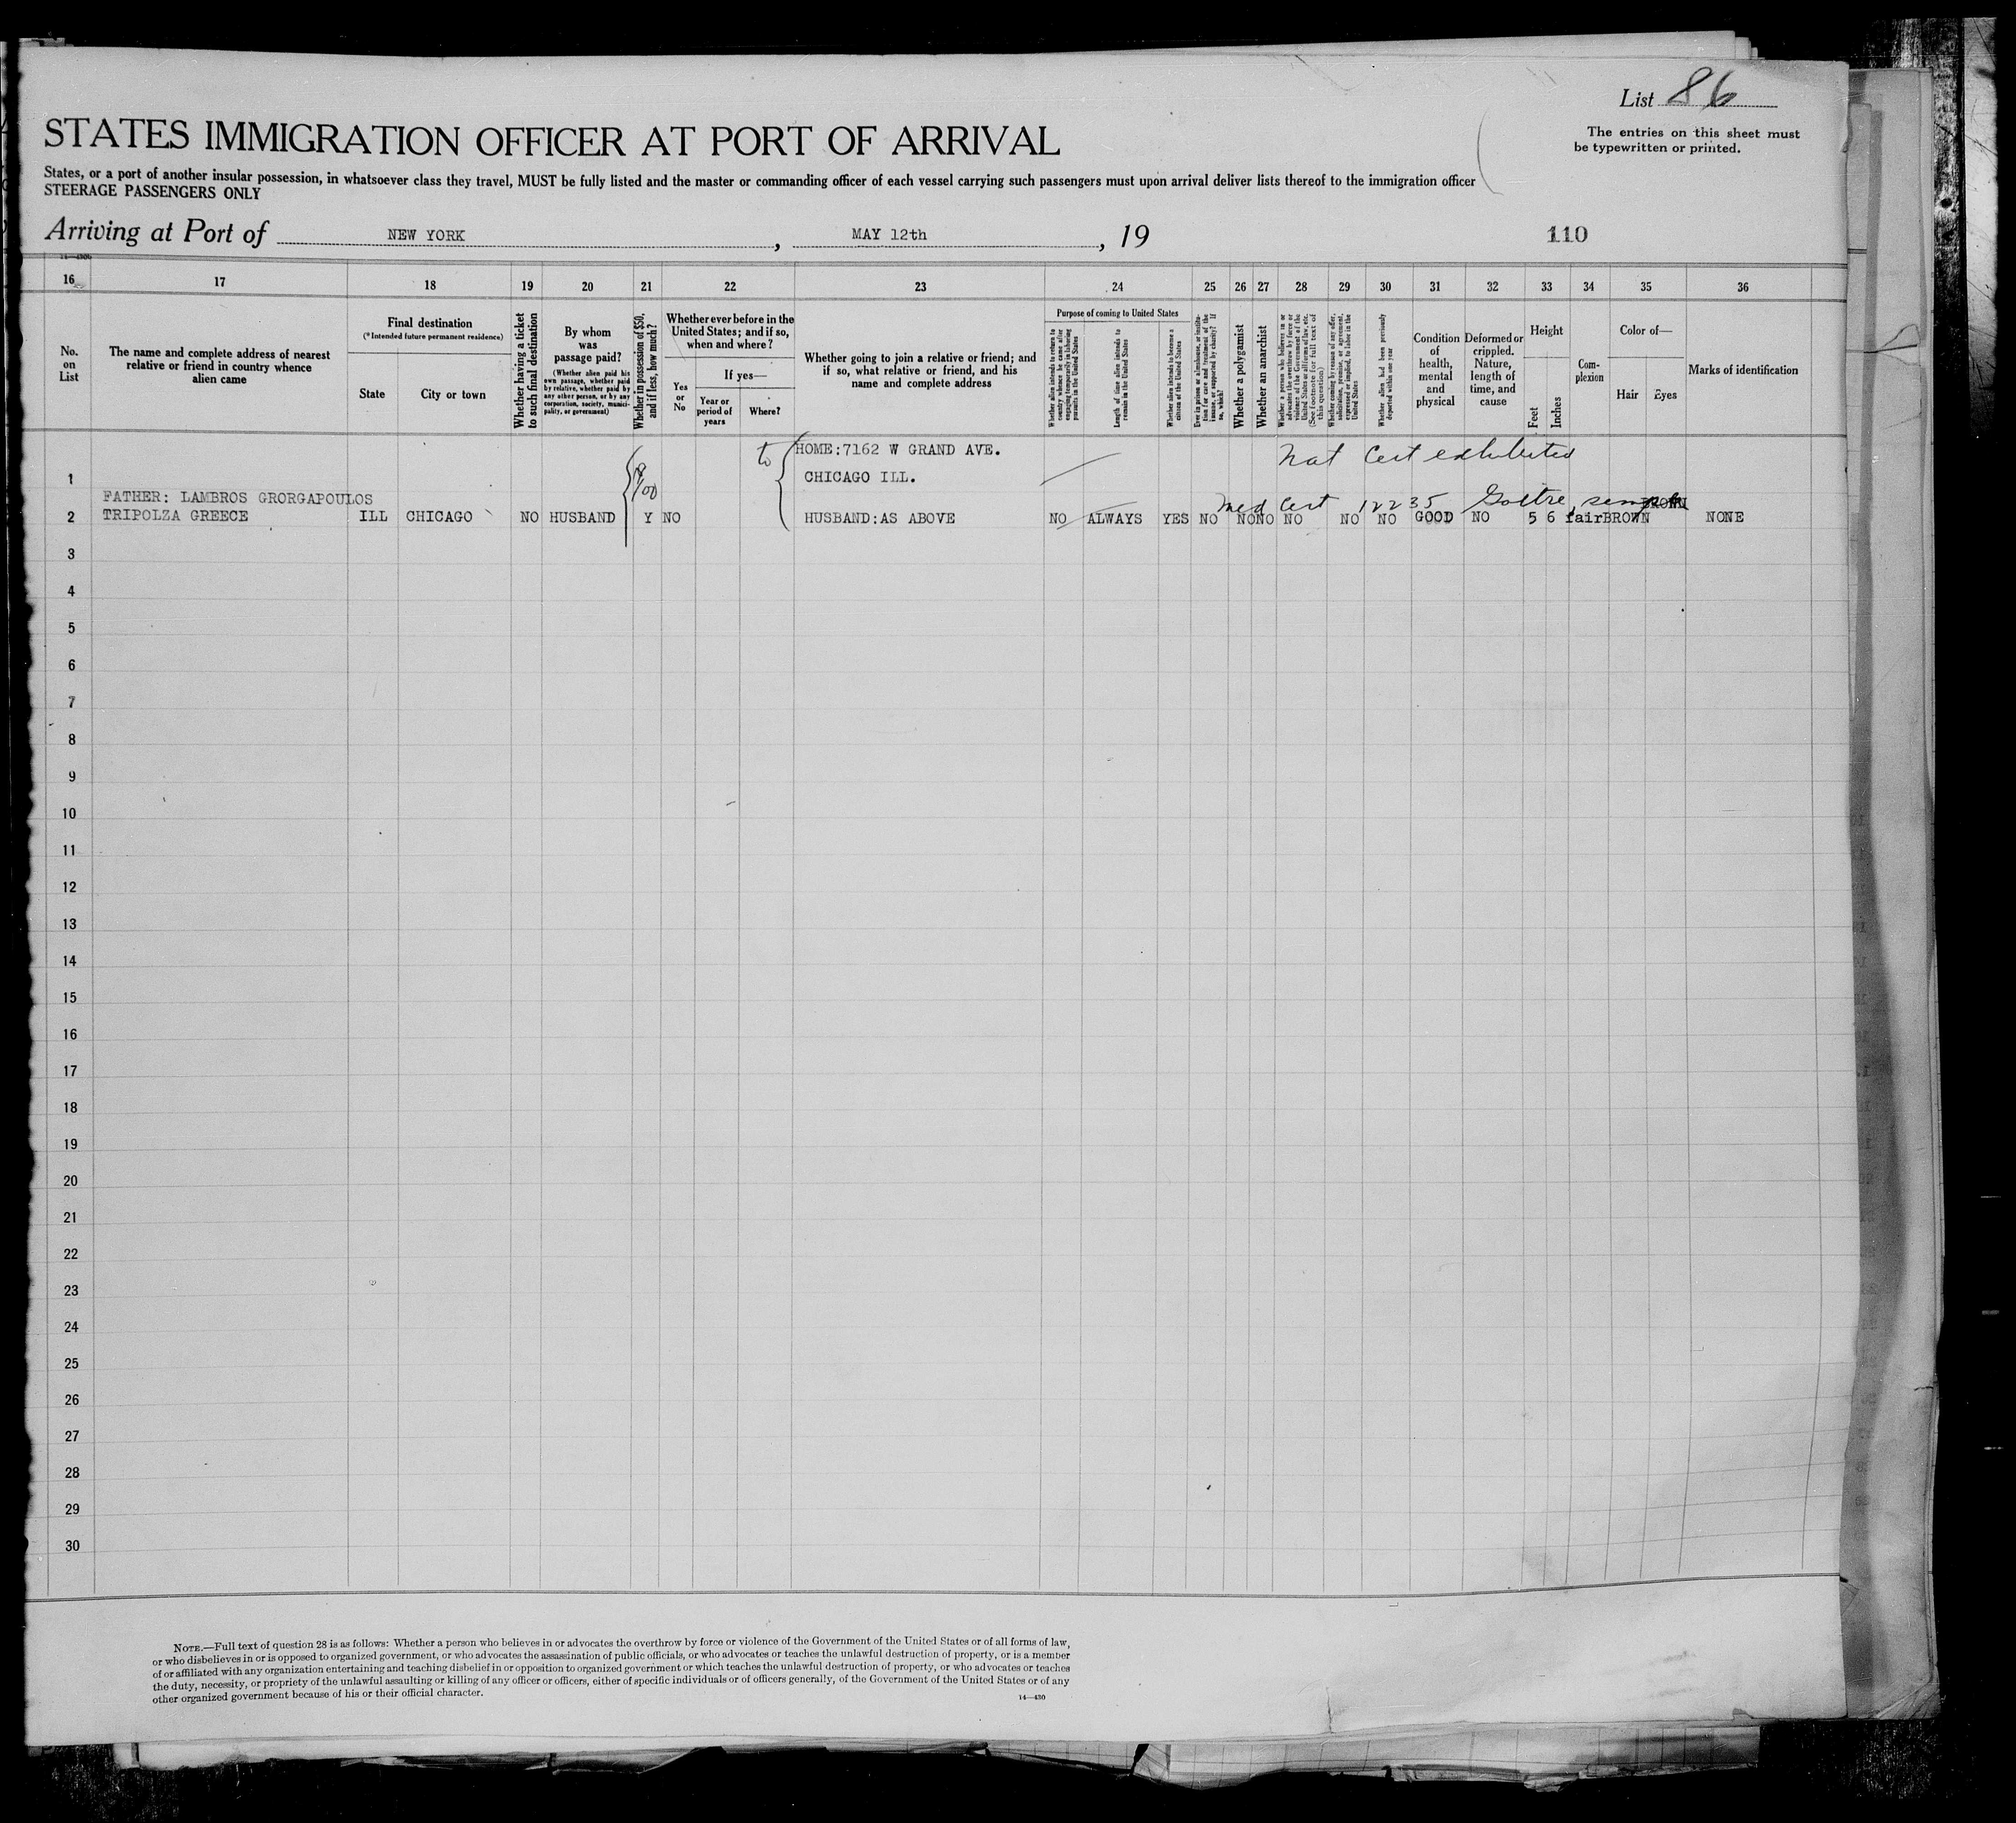 List 86
The entries on this sheet must
be typewritten or printed.
STATES IMMIGRATION OFFICER AT PORT OF ARRIVAL
States, or a port of another insular possession, in whatsoever class they travel, MUST be fully listed and the master or commanding officer of each vessel carrying such passengers must upon arrival deliver lists thereof to the immigration officer
STEERAGE PASSENGERS ONLY
Arriving at Port of NEW YORK, MAY 12th, 19 110
16 17 18 19 20 21 22 23 24 25 26 27 28 29 30 31 32 33 34 35 36
No. on List
The name and complete address of nearest
relative or friend in country whence
alien came
Final destination
(*Intended future permanent residence)
State
City or town
Whether having a ticket
to such final destination
By whom
was
passage paid?
(Whether alien paid his
own passage, whether paid
by relative, whether paid by
any other person, or by any
corporation, society, munici-
pality, or government)
Whether in possession of $50,
and if less, how much?
Whether ever before in the
United States; and if so,
when and where?
Yes
or
No
If yes—
Year or
period of
years
Where?
Whether going to join a relative or friend; and
if so, what relative or friend, and his
name and complete address
Purpose of coming to United States
Whether alien intends to return to
country whence he came after
engaging temporarily in laboring
pursuits in the United States
Length of time alien intends to
remain in the United States
Whether alien intends to become a
citizen of the United States
Ever in prison or almshouse, or institu-
tion for care and treatment of the
insane, or supported by charity? If
so, which?
Whether a polygamist
Whether an anarchist
Whether a person who believes in or
advocates the overthrow by force or
violence of the Government of the
United States or all forms of law, etc.
(See footnote for full text of
this question)
Whether coming by reason of any offer,
solicitation, promise, or agreement,
expressed or implied, to labor in the
United States
Whether alien had been previously
deported within one year
Condition
of
health,
mental
and
physical
Deformed or
crippled.
Nature,
length of
time, and
cause
Height
Feet
Inches
Com-
plexion
Color of—
Hair
Eyes
Marks of identification
to HOME:7162 W GRAND AVE. Nat Cert exhibited
1 CHICAGO ILL.
FATHER: LAMBROS GRORGAPOULOS Med Cert 12235 Goitre, simple BROWN
2 TRIPOLZA GREECE ILL CHICAGO NO HUSBAND Y NO HUSBAND:AS ABOVE NO ALWAYS YES NO NO NO NO NO NO GOOD NO 5 6 fair BROWN NONE
3
4
5
6
7
8
9
10
11
12
13
14
15
16
17
18
19
20
21
22
23
24
25
26
27
28
29
30
NOTE.—Full text of question 28 is as follows: Whether a person who believes in or advocates the overthrow by force or violence of the Government of the United States or of all forms of law,
or who disbelieves in or is opposed to organized government, or who advocates the assassination of public officials, or who advocates or teaches the unlawful destruction of property, or is a member
of or affiliated with any organization entertaining and teaching disbelief in or opposition to organized government or which teaches the unlawful destruction of property, or who advocates or teaches
the duty, necessity, or propriety of the unlawful assaulting or killing of any officer or officers, either of specific individuals or of officers generally, of the Government of the United States or of any
other organized government because of his or their official character.
14—430